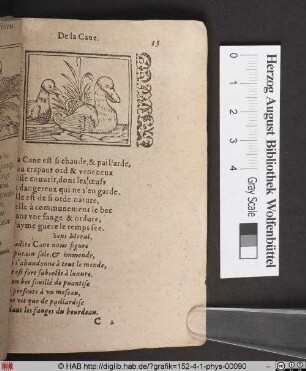 De la Cane.
35
a Cane est si chaude, & paillarde,
au crapaut ord & veneneux
se couurir, dont les œufs
t dangereux qui ne s'en garde.
lle est de si orde nature,
elle à communement le bec
ans vne fange & ordure,
ayme guere le temps sec.
Sens Moral.
adite Cane nous figure
putain sale, & immonde,
s'abandonne à tout le monde,
est fort subiecte à luxure.
bec souillé de puantise
presente à vn
vie que de paillardise
dans les fanges du bourdeau.
C
Herzog August Bibliothek Wolfenbüttel
Gray Scale
0
1
2
3
4
© HAB http://diglib.hab.de/?grafik=152-4-1-phys-00090